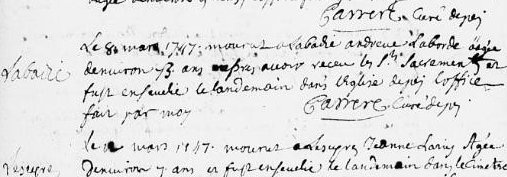 Carrere Curé de pej
Le 8e mars 1747. mourut a Labadie andreve Laborde aagée
Labadie
denviron 73 ans apres avoir receu les Sts Sacrements et
fust ensevelie le landemain dans l'Eglise de pej l'office
fait par moy Carrere Curé de pej
le mars 1747. mourut a Lesteyres Jeanne Agée
denviron 7 ans et fust ensevelie le landemain dans le Cimetre